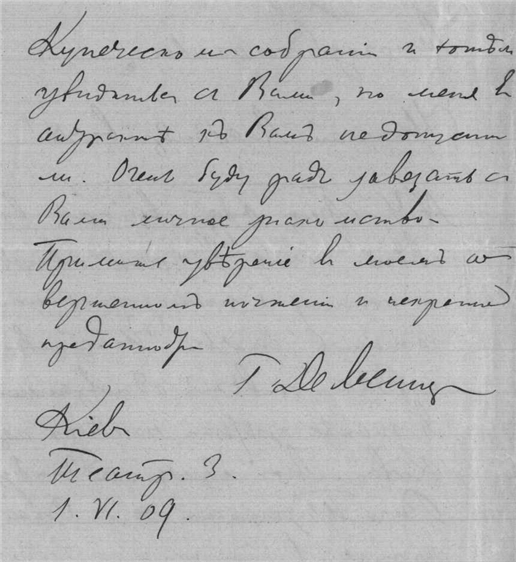 Купеческом собраніи и хотѣлъ
увидиться съ Вами, но меня въ
антрактѣ къ Вамъ не допусти
ли. Очень буду радъ завезать съ
Вами личное знакомство.
Примите увѣреніе въ моемъ со
вершенномъ почтеніи и искренней
преданности
Г.
Кіевъ
Театр. 3.
1. VI. 09.